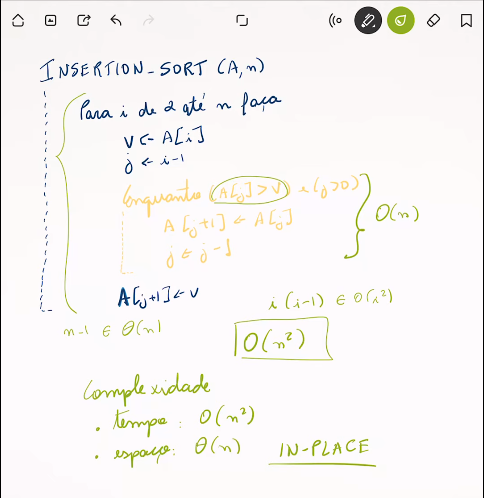 INSERTION-SORT (A,n)
Para i de 2 até n faça
v ← A[i]
j ← i-1
Enquanto (A[j] > v) e (j>0)
A[j+1] ← A[j]
j ← j-1
O(n)
A[j+1] ← v
i(i-1) ∈ O(i²)
n-1 ∈ Θ(n)
O(n²)
Complexidade
• tempo: O(n²)
• espaço: Θ(n) IN-PLACE